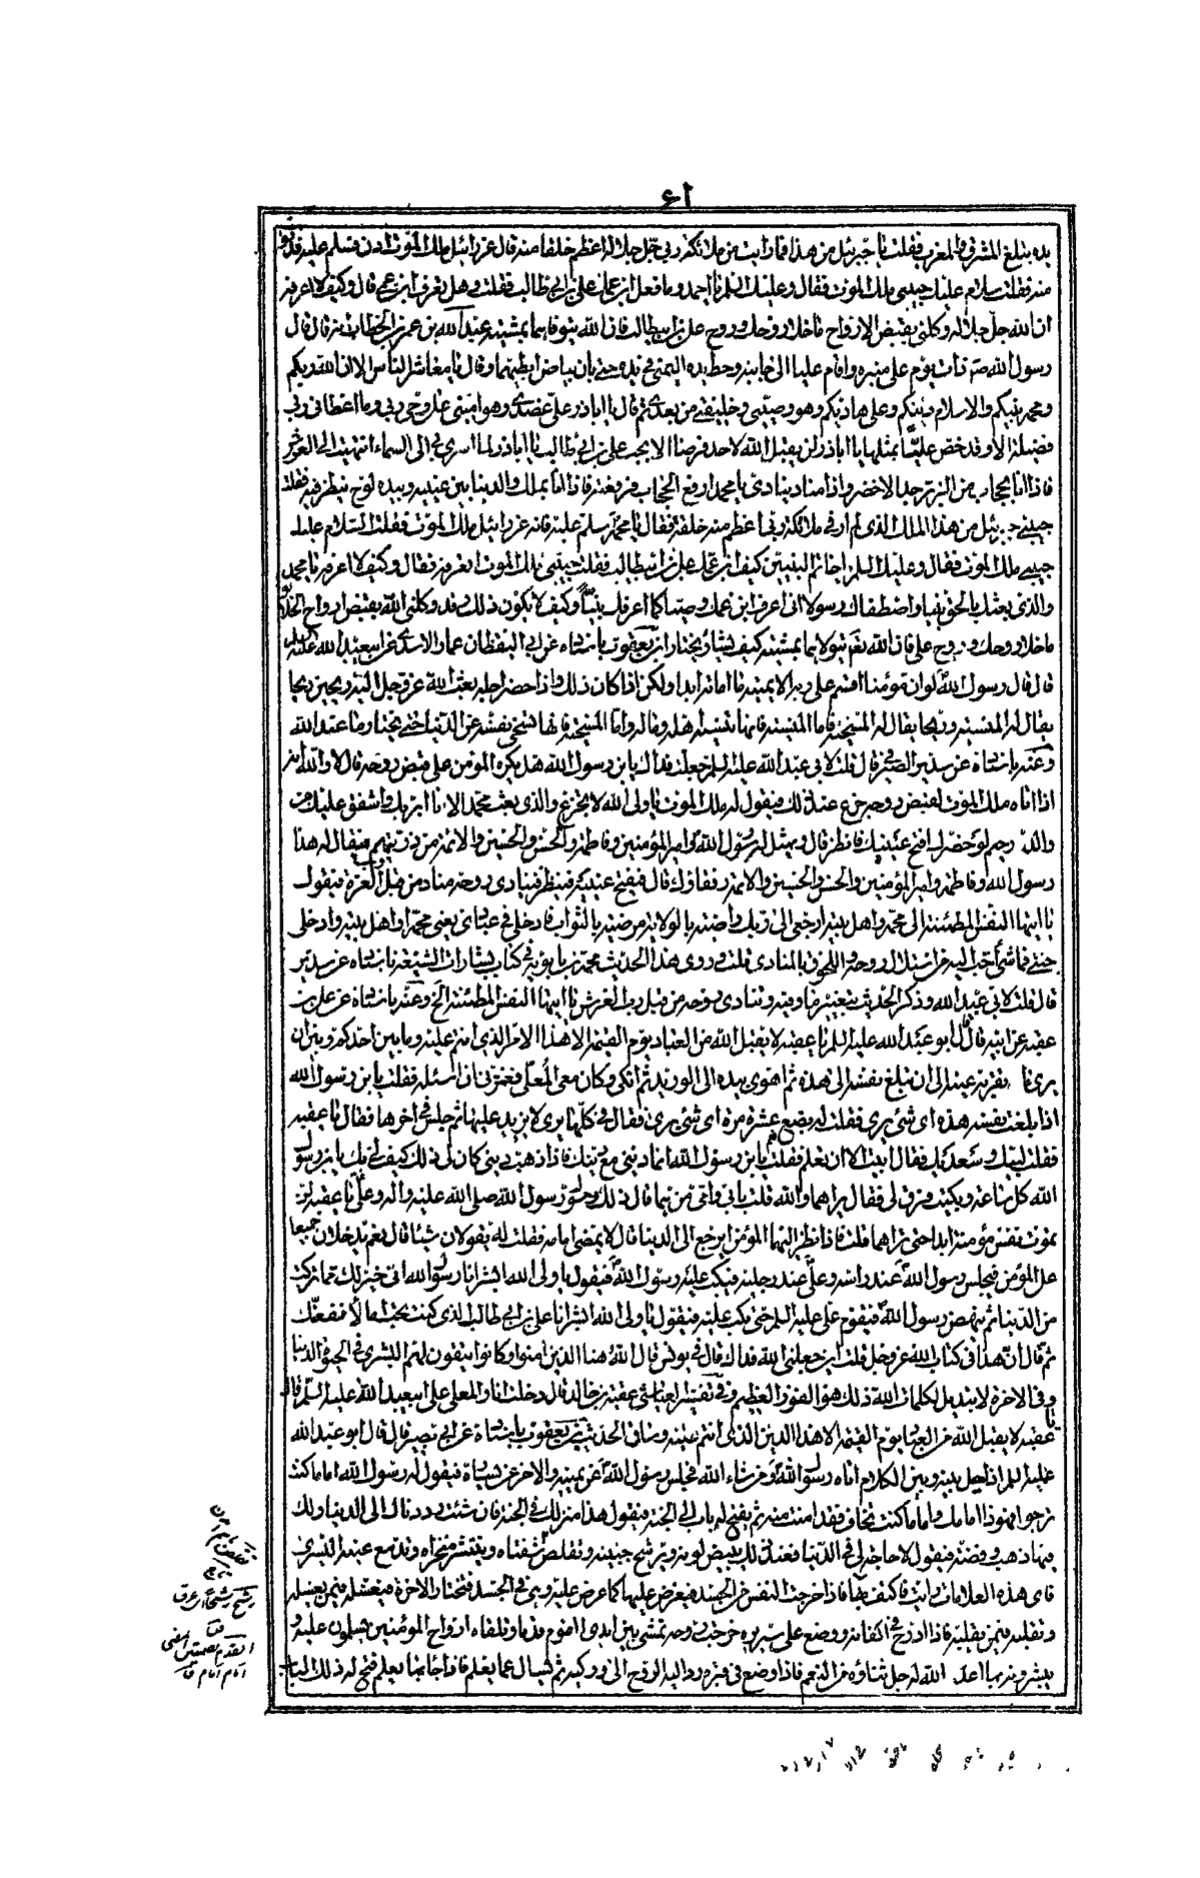 ٦١
يده يبلغ المشرق والمغرب فقلت يا جبرئيل من هذا فما رايت من ملائكة ربي جل جلاله اعظم خلقا منه قال عزرائيل ملك الموت ادن فسلم عليه فدنوت
منه فقلت سلام عليك حبيبي ملك الموت فقال وعليك السلم يا احمد وما فعل ابن عمك علي بن ابي طالب فقلت وهل تعرف ابن عمي قال وكيف لا اعرفه
ان الله جل جلاله وكلني بقبض الارواح ما خلا روحك وروح علي بن ابيطالب فان الله يتوفاهما بمشيته عبد الله بن عمر بن الخطاب قال قال
رسول الله ص ذات يوم على منبره واقام عليا الى جانبه وحط يده اليمنى في يده حتى بان بياض ابطيهما وقال يا معاشر الناس الا ان الله ربكم
ومحمد نبيكم والاسلام دينكم وعلى هاديكم وهو وصيي وخليفتي من بعدي ثم قال يا اباذر علي عضدي وهو اميني على وحي ربي وما اعطاني ربي
فضيلة الا وقد خص عليا بمثلها يا اباذر لن يقبل الله لاحد فرضا الا بحب علي بن ابي طالب يا اباذر لما اسري بي الى السماء انتهيت الى العرش
فاذا انا بحجاب من الزبرجد الاخضر واذا مناد ينادي يا محمد ارفع الحجاب فرفعته فاذا انا بملك والدنيا بين عينيه وبيده لوح ينظر فيه فقلت
حبيبي جبرئيل من هذا الملك الذي لم ار في ملائكة ربي اعظم منه خلقة فقال يا محمد سلم عليه فانه عزرائيل ملك الموت فقلت السلام عليك
حبيبي ملك الموت فقال وعليك السلم يا خاتم النبيين كيف ابن عمك علي بن ابيطالب فقلت حبيبي ملك الموت اتعرفه فقال وكيف لا اعرفه يا محمد
والذي بعثك بالحق نبيا واصطفاك رسولا اني اعرف ابن عمك وصيا كما اعرفك نبيا وكيف لا يكون ذلك وقد وكلني الله بقبض ارواح الخلائق
ما خلا روحك وروح علي فان الله يتولاهما بمشيته كيف يشاء ويختار ابن يعقوب باسناده عن ابي اليقظان عمار الاسدي عن ابيعبد الله عليه السلم
قال قال رسول الله لو ان مؤمنا اقسم على ربه الا يميته ما اماته ابدا ولكن اذا كان ذلك واذا حضر اجله بعث الله عز وجل اليه ريحين ريحا
يقال له المنسية وريحا يقال له المسخية فاما المنسية فانها تنسيه اهله وماله واما المسخية فانها تسخي نفسه عن الدنيا حتى يختار ما عند الله
وعنه باسناده عن سدير الصيرفي قال قلت لابي عبد الله عليه السلم جعلت فداك يابن رسول الله هل يكره المؤمن على قبض روحه قال لا والله انه
اذا اتاه ملك الموت لقبض روحه جزع عند ذلك فيقول له ملك الموت يا ولي الله لا تجزع والذي بعث محمدا لانا ابر بك واشفق عليك من
والد رحيم لو حضرك افتح عينيك فانظر قال ويمثل له رسول الله وامير المؤمنين وفاطمة والحسن والحسين والائمة من ذريتهم فيقال له هذا
رسول الله وفاطمة وامير المؤمنين والحسن والحسين والائمة رفقاؤك قال فيفتح عينيه فينظر فينادي روحه مناد من قبل رب العزة فيقول
يا ايتها النفس المطمئنة الى محمد واهل بيته ارجعي الى ربك راضية بالولاية مرضية بالثواب فادخلي في عبادي يعني محمدا واهل بيته وادخلي
جنتي فما شئ احب اليه من استلال روحه واللحوق بالمنادي قلت وروى هذا الحديث محمد بن بابويه في كتاب بشارات الشيعة باسناده عن سدير
قال قلت لابي عبد الله وذكر الحديث بتغيير ما وفيه وتنادى روحه من قبل رب العرش يا ايتها النفس المطمئنة الخ وعنه باسناده عن علي بن
عقبة عن ابيه قال قال ابو عبد الله عليه السلم يا عقبة لا يقبل الله من العباد يوم القيمة الا هذا الامر الذي انتم عليه وما بين احدكم وبين ان
يرى ما تقر به عينه الا ان تبلغ نفسه الى هذه ثم اهوى بيده الى الوريد ثم اتكى وكان معي المعلى فغمزني ان اسئله فقلت يابن رسول الله
اذا بلغت نفسه هذه اي شئ يرى فقلت له بضع عشرة مرة اي شئ يرى فقال في كلها يرى لا يزيد عليها ثم جلس في اخرها فقال يا عقبة
فقلت لبيك وسعديك فقال ابيت الا ان تعلم فقلت نعم يابن رسول الله انما ديني مع دينك فاذا ذهب ديني كان ذلك كيف لي بك يابن رسول
الله كل ساعة وبكيت فرق لي فقال يراهما والله قلت بابي وامي من هما قال ذلك رسول الله صلى الله عليه واله وعلي يا عقبة لن
تموت نفس مؤمنة ابدا حتى تراهما قلت فاذا نظر اليهما المؤمن ايرجع الى الدنيا قال لا يمضي امامه فقلت له يقولان شيئا قال نعم يدخلان جميعا
على المؤمن فيجلس رسول الله عند راسه وعلي عند رجليه فيكب عليه رسول الله فيقول يا ولي الله ابشر انا رسول الله اني خير لك مما تركت
من الدنيا ثم ينهض رسول الله فيقوم علي عليه السلم حتى يكب عليه فيقول يا ولي الله ابشر انا علي بن ابي طالب الذي كنت تحب اما لانفعنك
ثم قال ان هذا في كتاب الله عز وجل قلت اين جعلني الله فداك قال في يونس قال الله هنا الذين امنوا وكانوا يتقون لهم البشرى في الحيوة الدنيا
وفي الاخرة لا تبديل لكلمات الله ذلك هو الفوز العظيم وفي تفسير العياشي عقبة بن خالد قال دخلت انا والمعلى على ابيعبد الله عليه السلم فقال
يا عقبة لا يقبل الله من العباد يوم القيمة الا هذا الدين الذي انتم عليه وساق الحديث ابن يعقوب باسناده عن ابي بصير قال قال ابو عبد الله
عليه السلم اذا حيل بينه وبين الكلام اتاه رسول الله ومن شاء الله فجلس رسول الله عن يمينه والاخر عن يساره فيقول له رسول الله اما ما كنت
ترجوا فهوذا امامك واما ما كنت تخاف فقد امنت منه ثم يفتح له باب الى الجنة فيقول هذا منزلك في الجنة فان شئت رددناك الى الدنيا ولك
فيها ذهب وفضة فيقول لا حاجة لي في الدنيا فعند ذلك يبيض لونه ويرشح جبينه وتقلص شفتاه وينتشر منخراه وتدمع عينه اليسرى
فاي هذه العلامات رايت فاكتف بها فاذا خرجت النفس من الجسد فيعرض عليها كما عرض عليه وهي في الجسد فتختار الاخرة فيغسله فيمن يغسله
وتقلبه فيمن يقلبه فاذا ادرج في اكفانه ووضع على سريره خرجت روحه تمشي بين ايدي القوم قدما وتلقاه ارواح المؤمنين يسلمون عليه
ويبشرونه بما اعد الله له جل ثناؤه من النعيم فاذا وضع في قبره رد اليه الروح الى وركيه ثم يسال عما يعلم فاذا جاء بما يعلم فتح له ذلك الباب